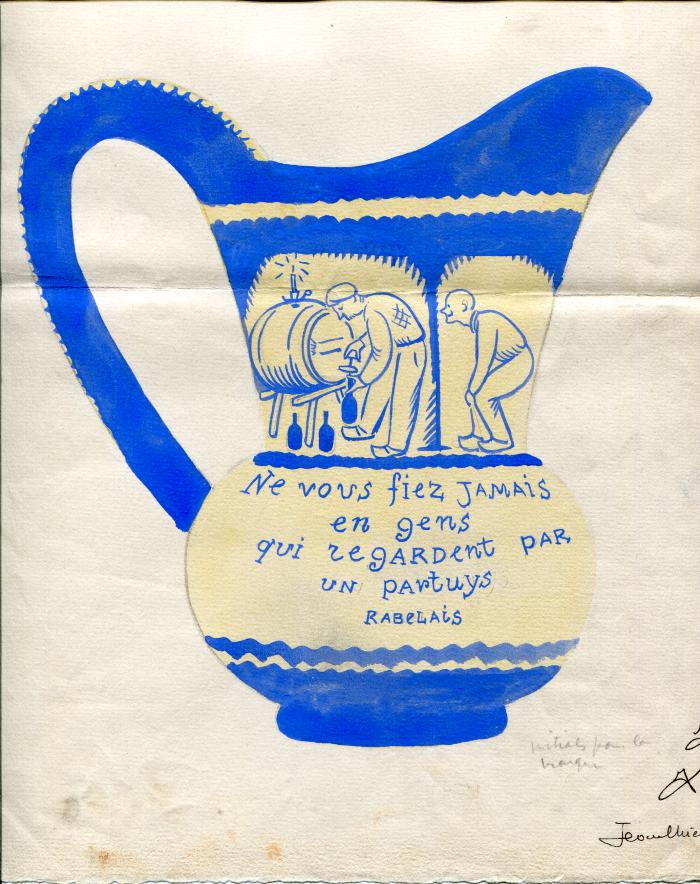 Ne vous fiez JAMAIS
en gens
qui regARDent PAR
UN partuys
RABeLAIS
initials pour la